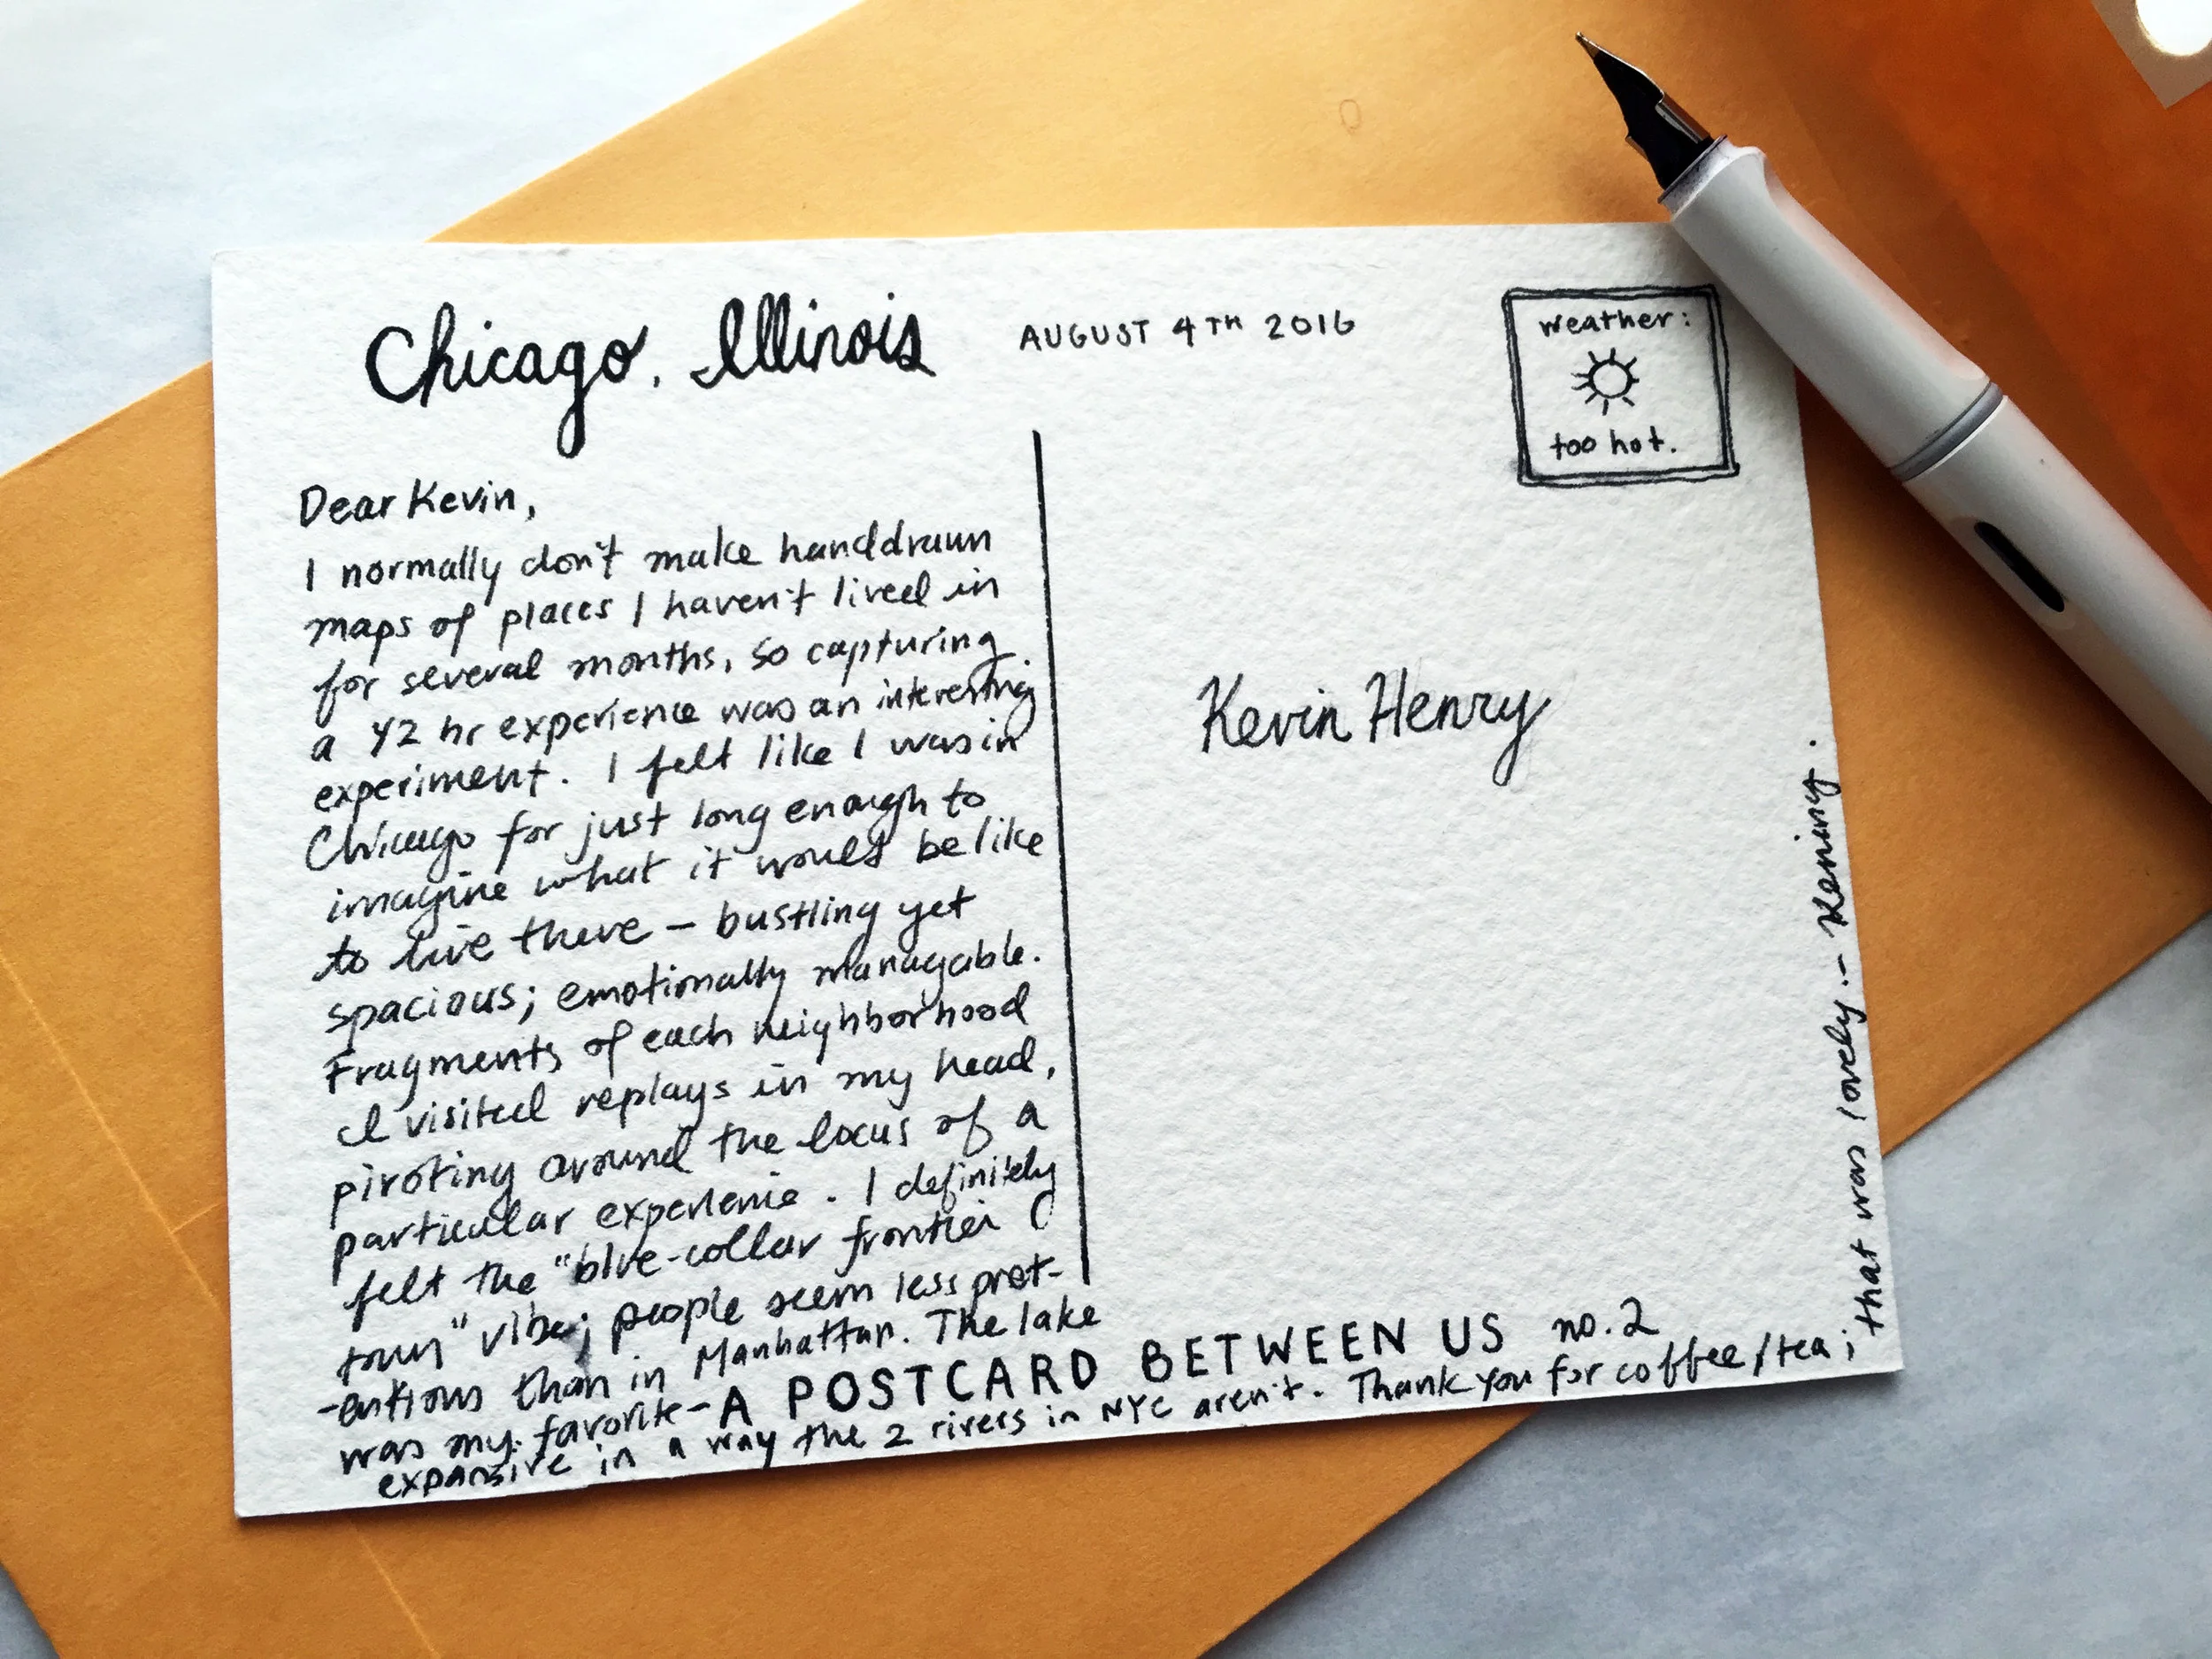 Chicago, Illinois
AUGUST 4TH 2016
weather:
too hot.
Dear Kevin,
I normally don't make handdrawn
maps of places I haven't lived in
for several months, so capturing
a 42 hr experience was an interesting
experiment. I felt like I was in
Chicago for just long enough to
imagine what it would be like
to live there – bustling yet
spacious; emotionally managable.
Fragments of each neighborhood
I visited replays in my head,
pivoting around the locus of a
particular experience. I definitely
felt the "blue-collar frontier
town" vibe; people seem less pret-
-entious than in Manhattan. The lake
was my favorite –
expansive in a way the 2 rivers in NYC aren't. Thank you for coffee/tea;
that was lovely. – Kening.
Kevin Henry
A POSTCARD BETWEEN US no.2